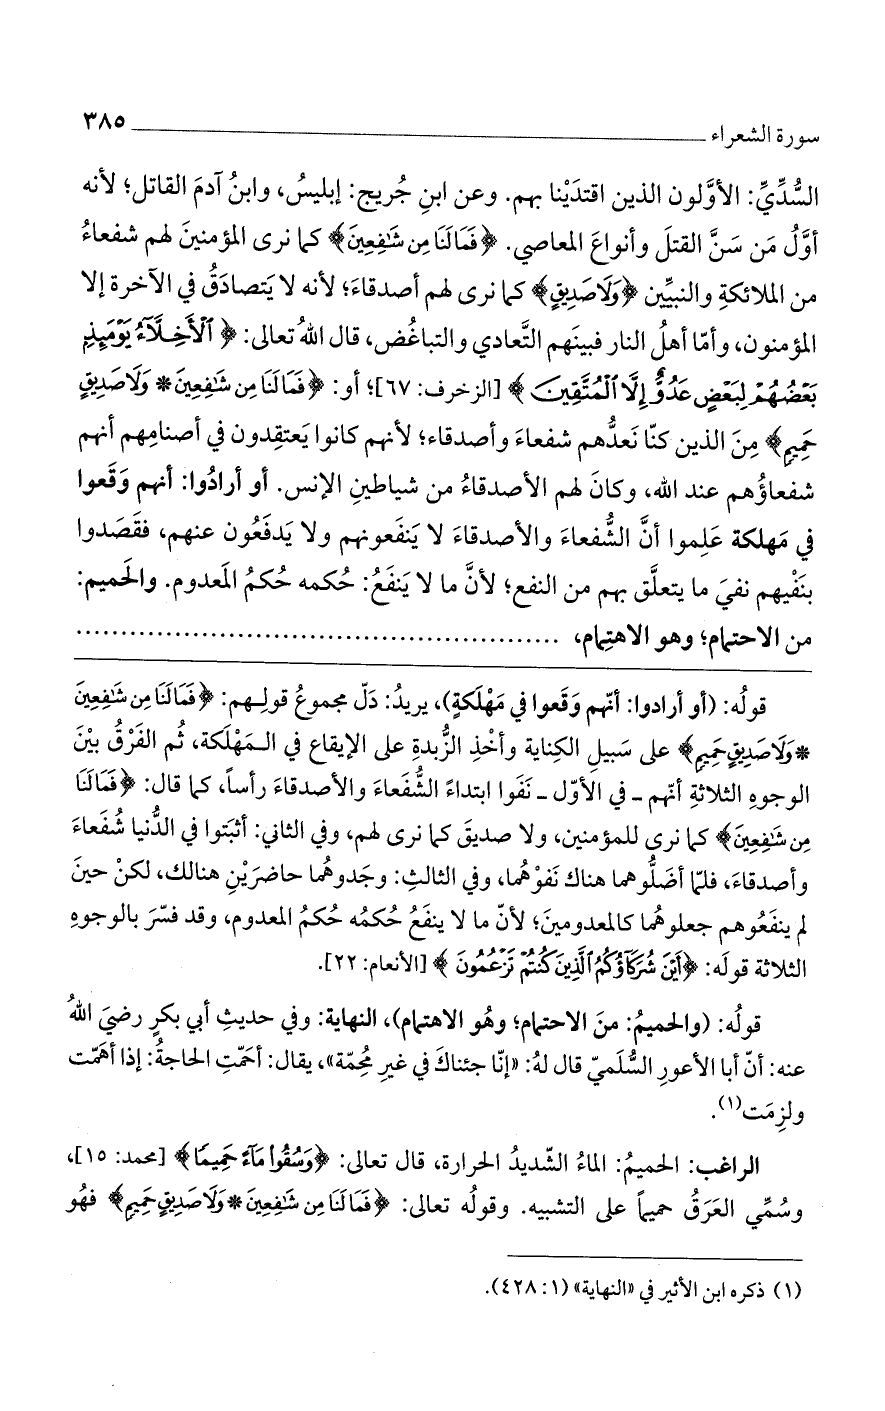 سورة الشعراء ٣٨٥
السُّدِّيِّ: الأوَّلون الذين اقتدَيْنا بهم. وعن ابنِ جُريج: إبليسُ، وابنُ آدمَ القاتل؛ لأنه
أوَّلُ مَن سَنَّ القتلَ وأنواعَ المعاصي. ﴿فَمَا لَنَا مِن شَٰفِعِينَ﴾ كما نرى المؤمنينَ لهم شفعاءُ
من الملائكةِ والنبيِّين ﴿وَلَا صَدِيقٍ﴾ كما نرى لهم أصدقاءَ؛ لأنه لا يَتصادَقُ في الآخرة إلا
المؤمنون، وأمّا أهلُ النار فبينَهم التَّعادي والتباغُض، قال اللهُ تعالى: ﴿ٱلْأَخِلَّآءُ يَوْمَئِذٍۭ
بَعْضُهُمْ لِبَعْضٍ عَدُوٌّ إِلَّا ٱلْمُتَّقِينَ﴾ [الزخرف: ٦٧]؛ أو: ﴿فَمَا لَنَا مِن شَٰفِعِينَ * وَلَا صَدِيقٍ
حَمِيمٍ﴾ مِنَ الذين كنّا نَعدُّهم شفعاءَ وأصدقاء؛ لأنهم كانوا يَعتقِدون في أصنامِهم أنهم
شفعاؤُهم عند الله، وكانَ لهم الأصدقاءُ من شياطينِ الإنس. أو أرادُوا: أنهم وَقَعوا
في مَهلكة عَلِموا أنَّ الشُّفعاءَ والأصدقاءَ لا يَنفَعونهم ولا يَدفَعُون عنهم، فقَصَدوا
بنَفْيهم نفيَ ما يتعلَّق بهم من النفع؛ لأنَّ ما لا يَنفَعُ: حُكمه حُكمُ المَعدوم. والحَميم:
من الاحتمام؛ وهو الاهتِمام، ......................................................
قولُه: (أو أرادوا: أنّهم وَقَعوا في مَهْلَكةٍ)، يريدُ: دَلّ مجموعُ قولِـهم: ﴿فَمَا لَنَا مِن شَٰفِعِينَ
* وَلَا صَدِيقٍ حَمِيمٍ﴾ على سَبيلِ الكِناية وأخْذِ الزُّبدةِ على الإيقاع في الـمَهْلَكة، ثُم الفَرْقُ بيْنَ
الوجوهِ الثلاثةِ أنّهم ـ في الأوّل ـ نَفَوا ابتداءً الشُّفَعاءَ والأصدقاءَ رأساً، كما قال: ﴿فَمَا لَنَا
مِن شَٰفِعِينَ﴾ كما نرى للمؤمنين، ولا صديقَ كما نرى لهم، وفي الثاني: أثبَتوا في الدُّنيا شُفَعاءَ
وأصدقاءَ، فلمّا أضَلُّوهما هناك نَفَوْهُما، وفي الثالثِ: وجَدوهُما حاضرَيْنِ هنالك، لكنْ حينَ
لم ينفَعُوهم جعلوهُما كالمعدومينَ؛ لأنّ ما لا ينفَعُ حُكمُه حُكمُ المعدوم، وقد فسّرَ بالوجوهِ
الثلاثة قولَه: ﴿أَيْنَ شُرَكَآؤُكُمُ ٱلَّذِينَ كُنتُمْ تَزْعُمُونَ﴾ [الأنعام: ٢٢].
قولُه: (والحميمُ: منَ الاحتمام؛ وهُو الاهتمام)، النهاية: وفي حديثِ أبي بكرٍ رضيَ اللهُ
عنه: أنّ أبا الأعورِ السُّلَميّ قال لهُ: «إنّا جئناكَ في غيرِ مُحِمّة»، يقال: أحَمّتِ الحاجةُ: إذا أهَمّت
ولزِمَت(١).
الراغب: الحميمُ: الماءُ الشّديدُ الحرارة، قال تعالى: ﴿وَسُقُوا۟ مَآءً حَمِيمًا﴾ [محمد: ١٥]،
وسُمِّي العَرَقُ حميماً على التشبيه. وقولُه تعالى: ﴿فَمَا لَنَا مِن شَٰفِعِينَ * وَلَا صَدِيقٍ حَمِيمٍ﴾ فهُو
(١) ذكره ابن الأثير في «النهاية» (١: ٤٢٨).